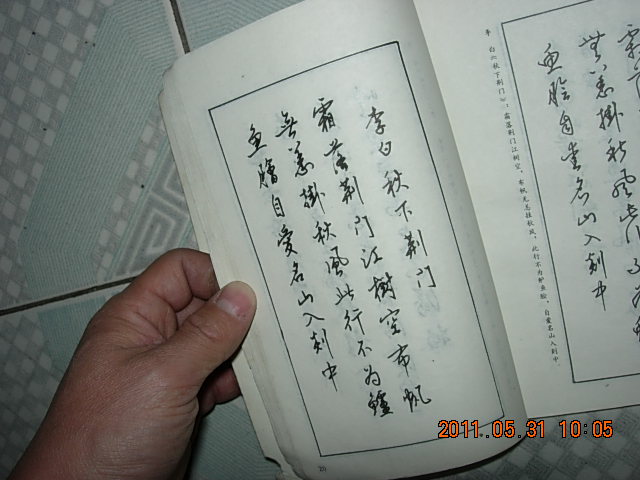 李白秋下荆门
霜落荆门江樹空布帆
無恙掛秋風此行不为鱸
鱼膾自愛名山入剡中
20
李 白《秋下荆门》：霜落荆门江树空，布帆无恙挂秋风。此行不为鲈鱼脍，自爱名山入剡中。
無恙掛秋風此行不为
鱼膾自愛名山入剡中
2011.05.31 10:05